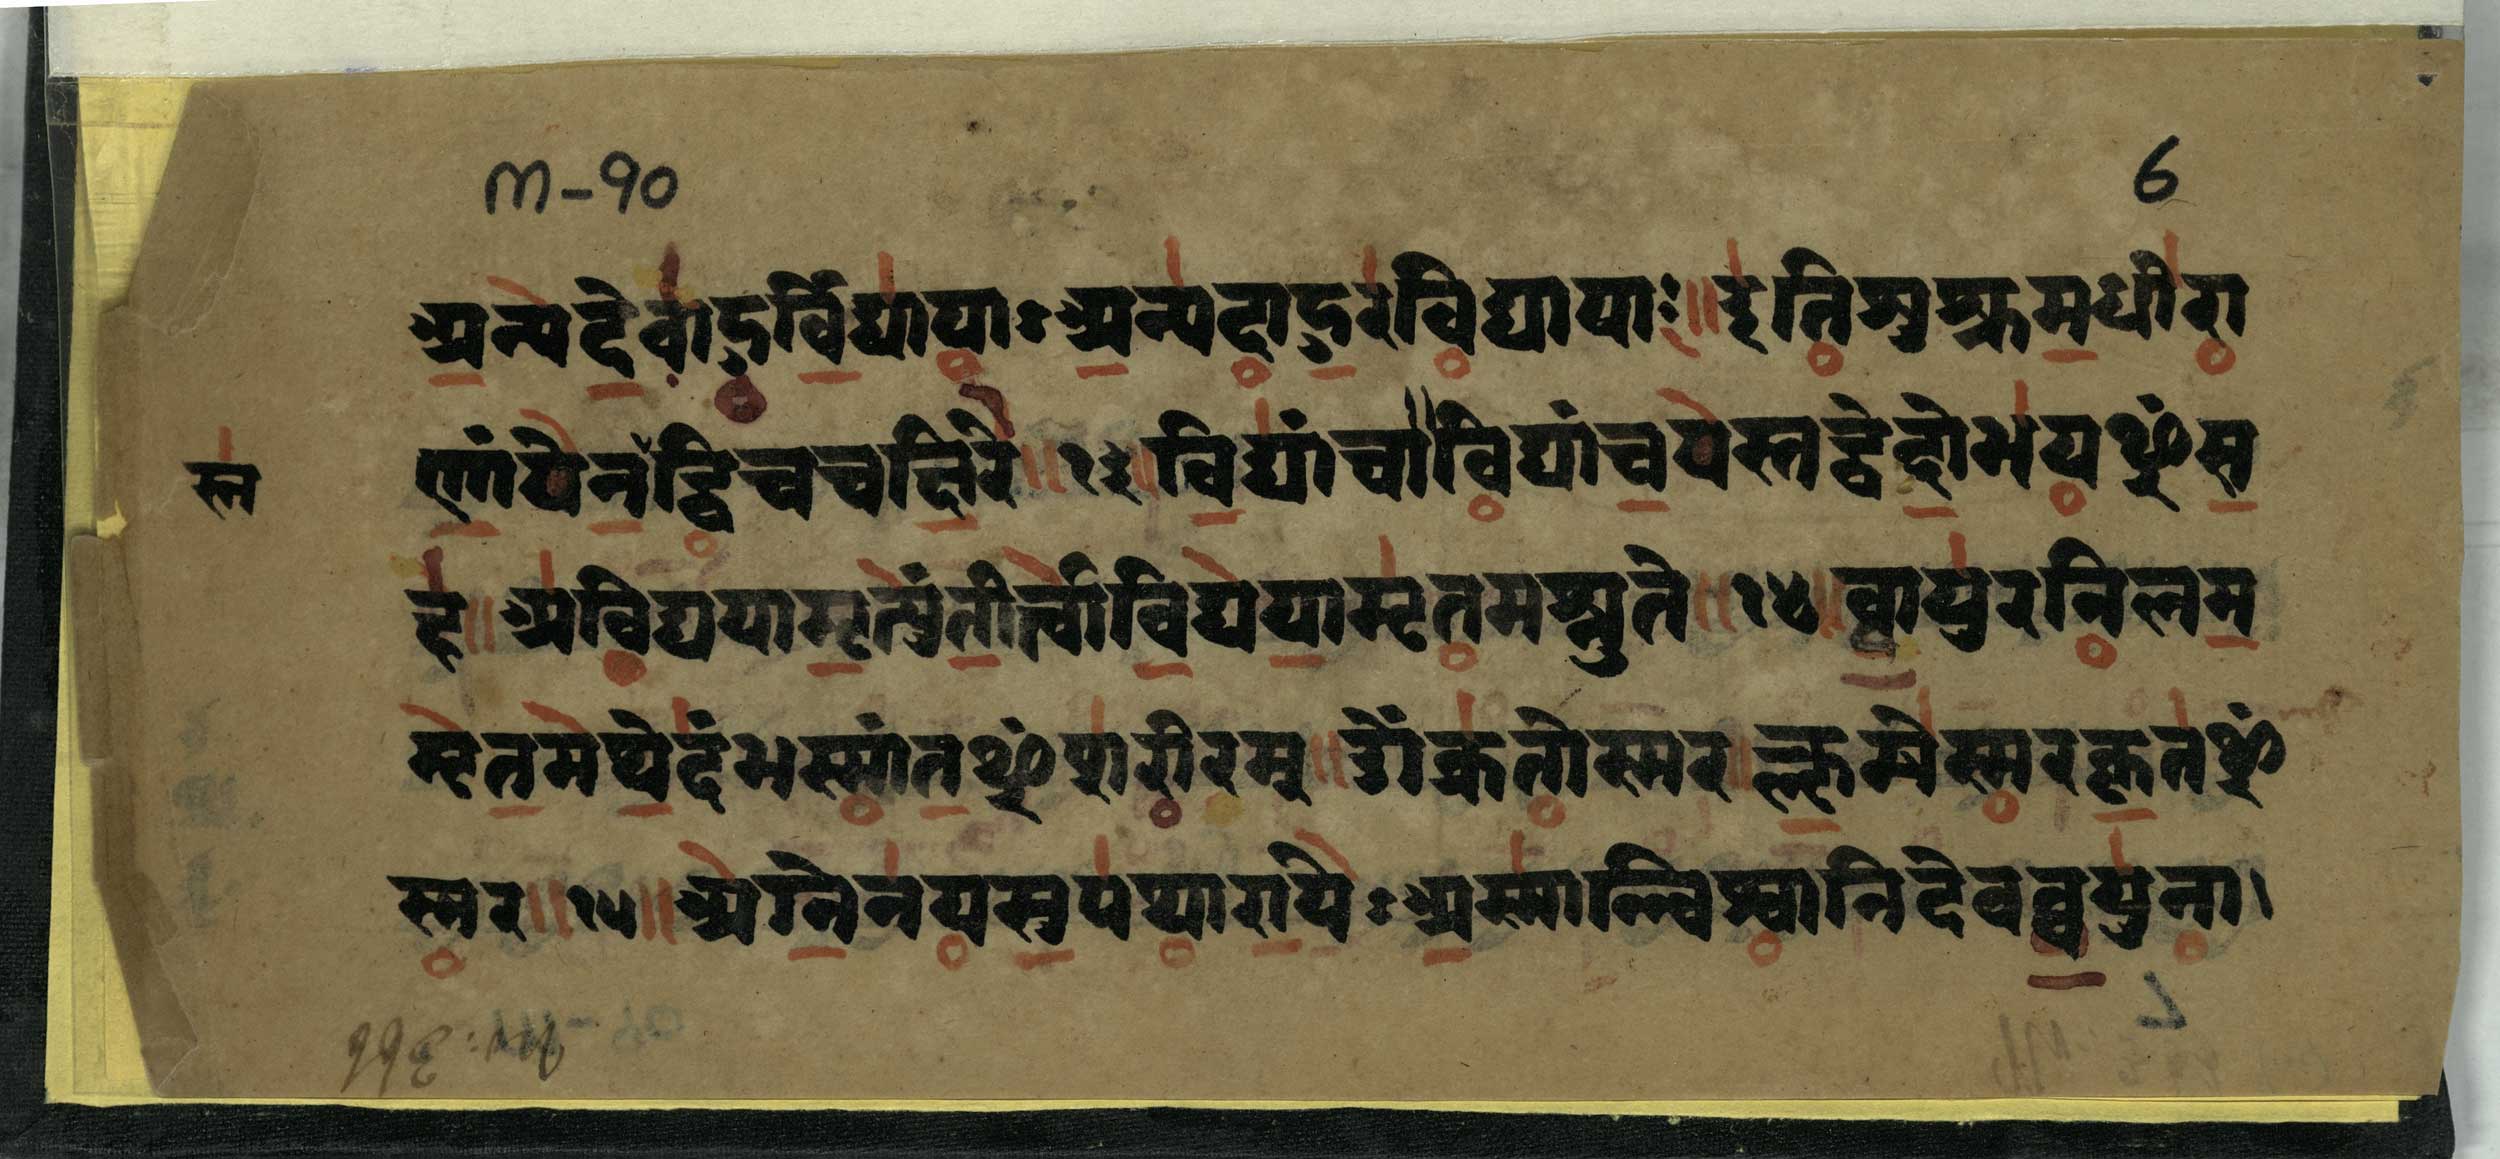 m-90
6
अन्यदेवाहुर्विद्यायाःअन्यदाहुरविद्यायाः॥इतिशुश्रुमधीरा
णांयेनस्तद्विचचक्षिरे॥१३विद्यांचाविद्यांचयस्तद्वेदोभयꣳस
स्त
ह॥अविद्ययामृत्युंतीर्त्वाविद्ययामृतमश्नुते॥१४॥वायुरनिलम
मृतमथेदंभस्मांतꣳशरीरम्॥ओँक्रतोस्मर॥क्लृमेस्मरकृतꣳ
स्मर॥१५॥अग्नेनयसुपथारायेःअस्मान्विश्वानिदेववयुना।